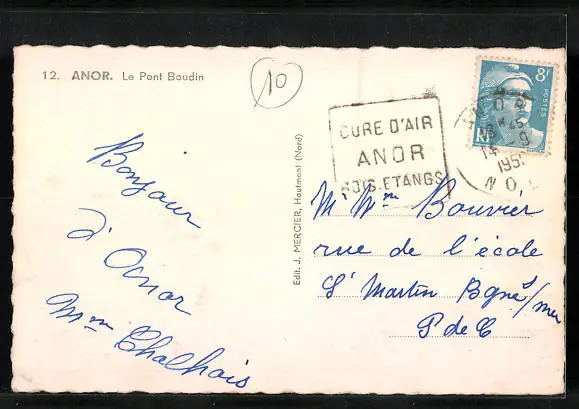 12. ANOR. Le Pont Boudin
10
CURE D'AIR
ANOR
BOIS. ETANGS
8F
POSTES
RF
ANOR
14
9
195
NO
Edit. J. MERCIER, Hautmont (Nord)
Bonjour
d'Anor
Mme
Mr Mme Bouvier
rue de l'école
St Martin Bgnes/mer
P. de C